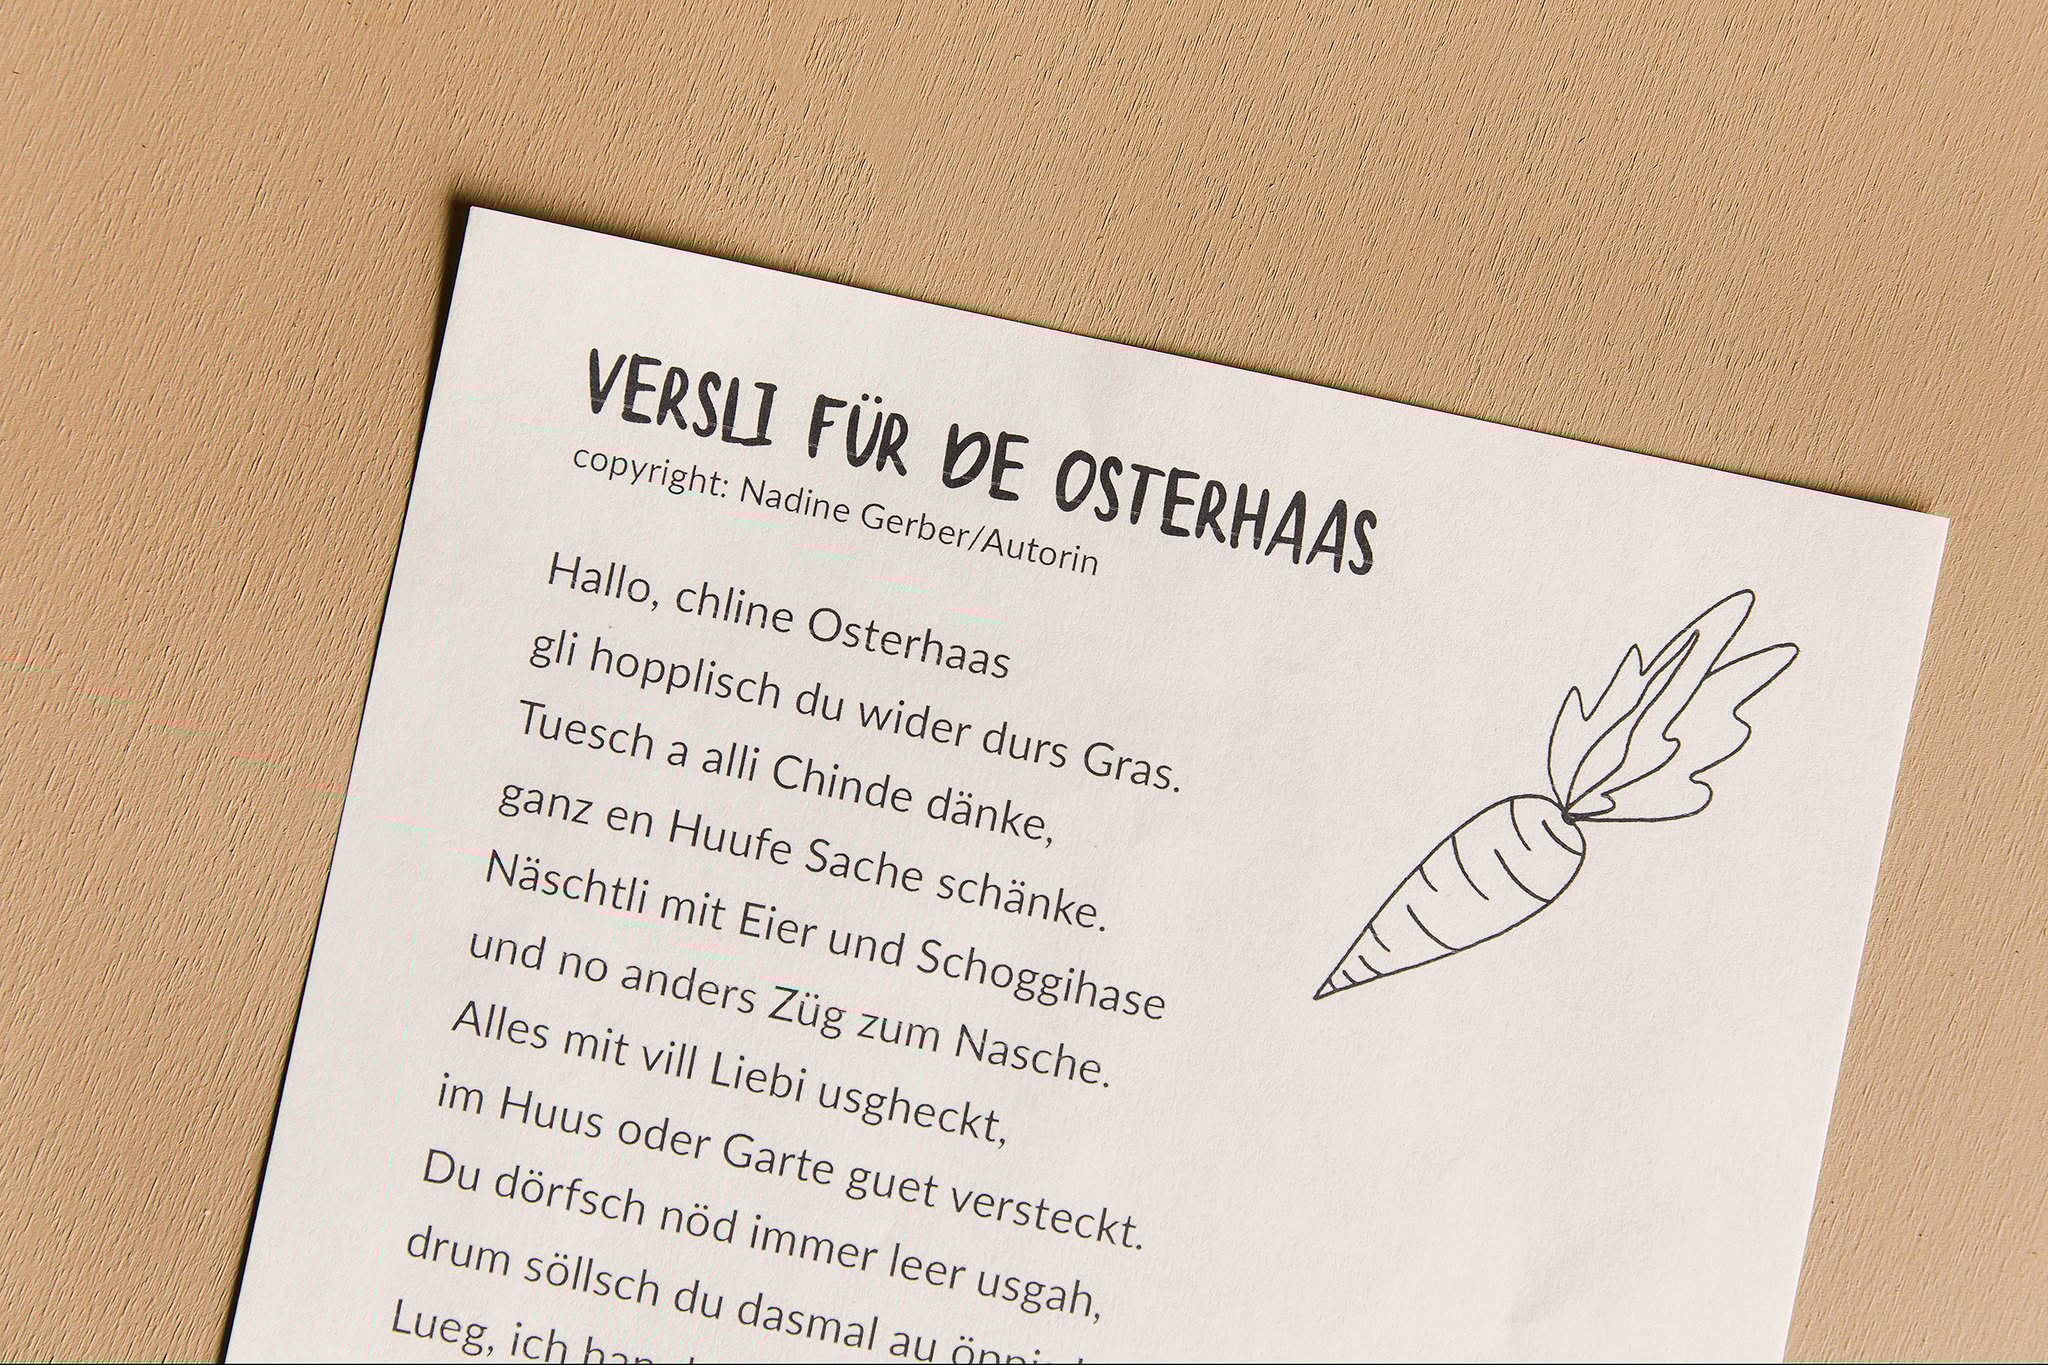 VERSLI FÜR DE OSTERHAAS
copyright: Nadine Gerber/Autorin
Hallo, chline Osterhaas
gli hopplisch du wider durs Gras.
Tuesch a alli Chinde dänke,
ganz en Huufe Sache schänke.
Näschtli mit Eier und Schoggihase
und no anders Züg zum Nasche.
Alles mit vill Liebi usgheckt,
im Huus oder Garte guet versteckt.
Du dörfsch nöd immer leer usgah,
drum söllsch du dasmal au
Lueg, ich